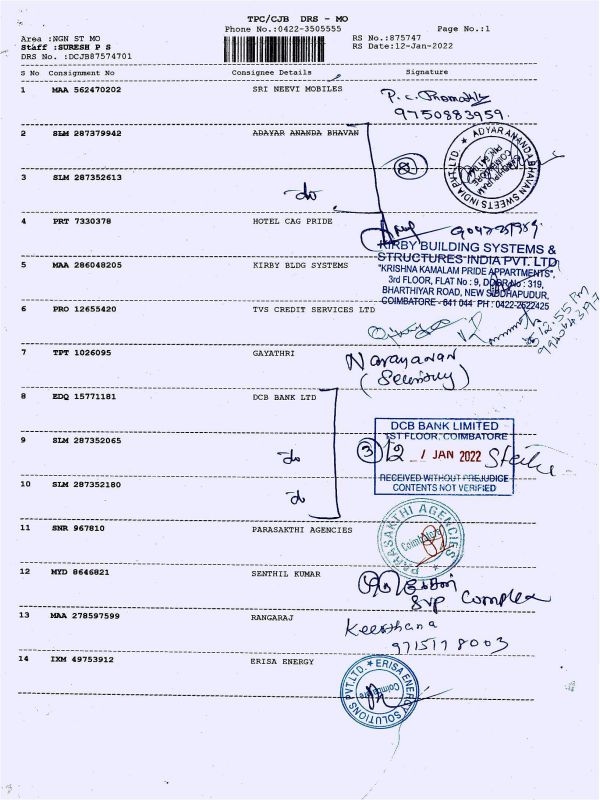 TPC/CJB DRS - MO
Phone No.:0422-3505555 Page No.:1
Area :NGN ST MO RS No.:875747
Staff :SURESH P S RS Date:12-Jan-2022
DRS No. :DCJB87574701
S No Consignment No Consignee Details Signature
1 MAA 562470202 SRI NEEVI MOBILES
9750883959.
2 SLM 287379942 ADAYAR ANANDA BHAVAN
ADYAR ANANDA BHAVAN SWEETS INDIA PVT. LTD.
3 SLM 287352613
do
4 PRT 7330378 HOTEL CAG PRIDE
KIRBY BUILDING SYSTEMS &
STRUCTURES INDIA PVT. LTD
5 MAA 286048205 KIRBY BLDG SYSTEMS
"KRISHNA KAMALAM PRIDE APPARTMENTS",
3rd FLOOR, FLAT No : 9, DOOR No : 319,
BHARTHIYAR ROAD, NEW SIDDHAPUDUR,
COIMBATORE - 641 044 PH : 0422-2522425
6 PRO 12655420 TVS CREDIT SERVICES LTD
12.55 Pm
7 TPT 1026095 GAYATHRI
Narayanan
(Security)
8 EDQ 15771181 DCB BANK LTD
DCB BANK LIMITED
1ST FLOOR, COIMBATORE
9 SLM 287352065
do
3
12 / JAN 2022
RECEIVED WITHOUT PREJUDICE
CONTENTS NOT VERIFIED
10 SLM 287352180
do
11 SNR 967810 PARASAKTHI AGENCIES
PARASAKTHI AGENCIES
Coimbatore
12 MYD 8646821 SENTHIL KUMAR
SVP Complex
13 MAA 278597599 RANGARAJ
Keerthana
9715178003
14 IXM 49753912 ERISA ENERGY
ERISA ENERGY SOLUTIONS PVT.LTD.
Coimbatore